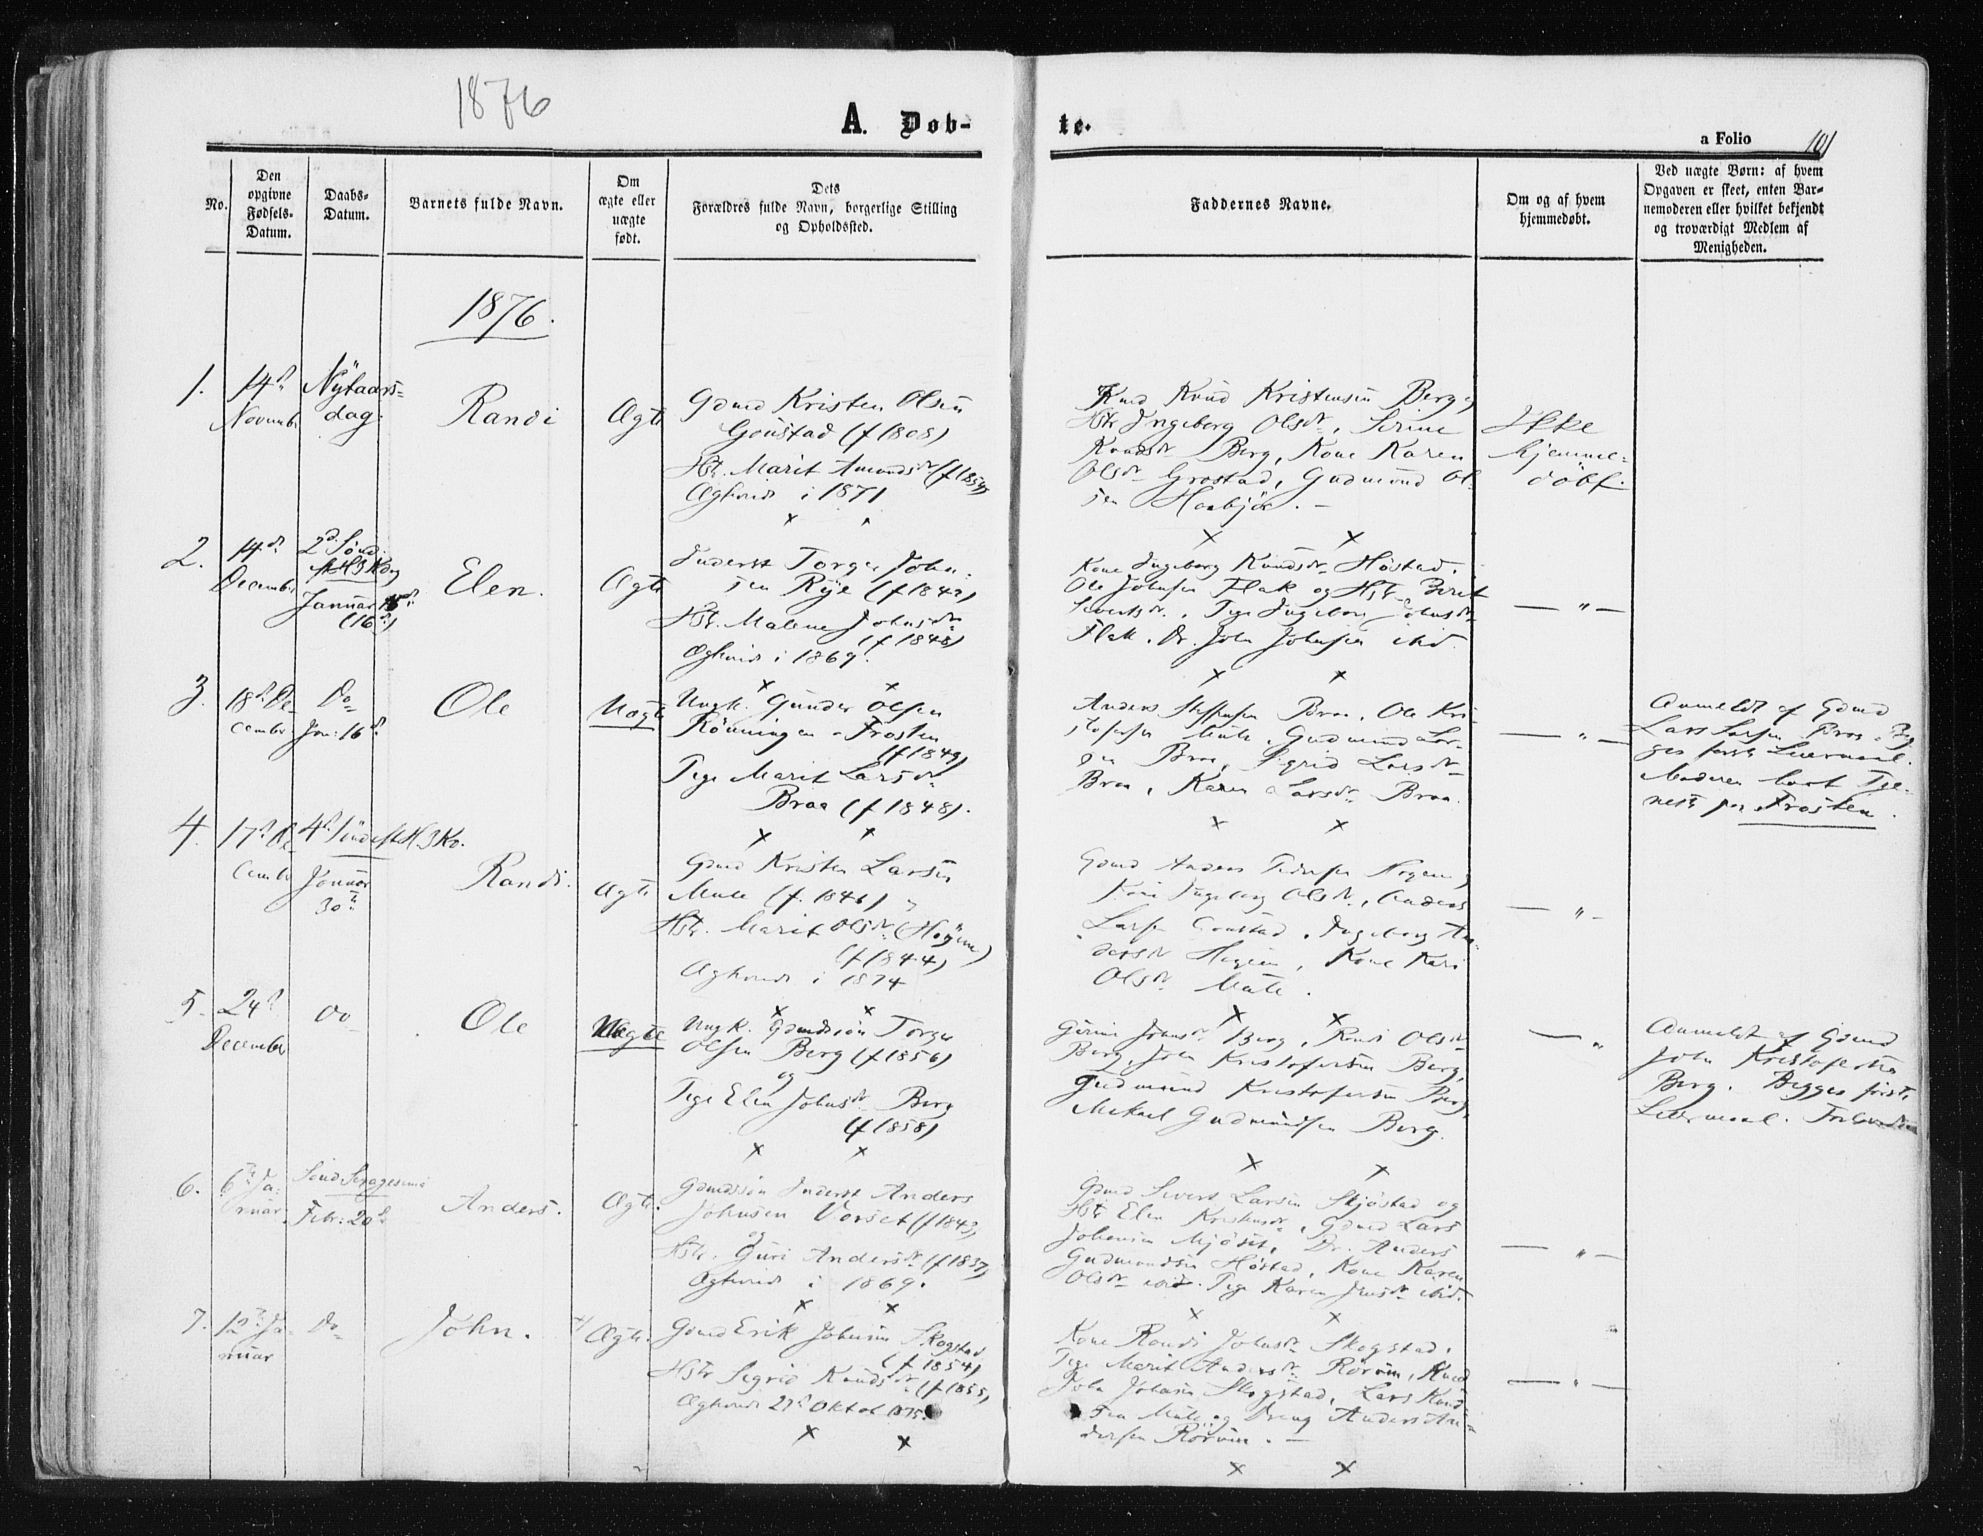 1876
A. Døb-
te.
a Folio 101
No.
Den opgivne Fødsels-Datum.
Daabs-Datum.
Barnets fulde Navn.
Om ægte eller uægte født.
Dets Forældres fulde Navn, borgerlige Stilling og Opholdssted.
Faddernes Navne.
Om og af hvem hjemmedøbt.
Ved uægte Børn: af hvem Opgaven er skeet, enten Barnemoderen eller hvilket bekjendt og troværdigt Medlem af Menigheden.
1876.
1.
14de
Novembr
Nÿtaars-
dag.
Randi
Ægte
Gdmd Kristen Olsen
Goustad (f 1808)
Hst. Marit Amundsdr (f 1854)
Ægtevid i 1871
Kmd Knud Kristensen Berg,
Hst Ingeborg Olsdr, Serine
Knudsdr Berg, Kone Karen
Olsdr Grostad, Gudmund Ol-
sen Haabjør. -
Ikke
hjemme-
døbt.
2.
14de
December
2d Sønd.
Januar
(16de)
Elen.
Ægte
Inderst Torger John-
sen Rÿe (f 1842)
Hst. Malene Johnsdr
(f 1848)
Ægtevid i 1869.
Kone Ingeborg Knudsdr Höstad,
Ole Johnsen Flak og Hst Berit
Sivertsdr, Pige Ingeborg Johnsdr
Flak. Dr. John Johnsen ibid.
— " —
3.
18de De
cember
Do
Jan: 16de
Ole
Uægte
Ungk. Gunder Olsen
Rönningen - Frosten
(f 1849)
Pige Marit Larsdr
Braa (f 1848).
Anders Steffensen Braa, Ole Kri-
stofersen Mule, Gudmund Lar-
sen Braa, Sigrid Larsdr
Braa, Karen Larsdr Braa.
— " —
Anmeldt af Gdmd
Lars Larsen Braa. Beg-
ges første Leiermaal.
Moderen havt Tje-
neste paa Frosten.
4.
17de De
cember
4de Sönd e. H 3 Ko.
Januar
30te
Randi.
Ægte
Gdmd Kristen Larsen
Mule (f. 1846)
Hst. Marit Olsdr (Højem)
(f 1844)
Ægtevid i 1874
Gdmd Anders Pedersen
Kone Ingeborg Olsdr, Anders
Larsen Goustad, Ingeborg An-
dersdr Hogem, Kone Kari
Olsdr Mule.
— " —
5.
24de
December
Do
Ole
Uægte
Ungk. Gdmdssön Torger
Olsen Berg (f 1856)
og
Pige Elen Johnsdr Berg
(f 1858)
Gurine Johnsdr Berg, Randi Olsdr
Berg, John Kristofersen Berg,
Gudmund Kristofersen Berg,
Mekael Gudmundsen Berg.
— "
Anmeldt af Gdmd
John Kristofersen
Berg. Begges første
Leiermaal.
6.
6te Ja-
nuar
Sönd Sexagesima
Febr: 20de
Anders.
Ægte.
Gdmdssön Inderst Anders
Johnsen Vorset (f 1843)
og
Hst. Guri Andersdr (f 1837)
Ægtevid i 1869.
Gdmd Sivert Larsen Skjöstad og
Hst Elen Kristensdr, Gdmd Lars
Johnsen Mjöset, Dr. Anders
Gudmundsen Höstad, Kone Karen
Olsdr ibid. Pige Karen Jensdr ibid.
— " —
7.
12te Ja-
nuar
Do
John.
Ægte.
Gdmd Erik Johnsen Skogstad
(f 1854)
Hst Sigrid Knudsdr (f 1855)
Ægtevid 27de Oktob 1875.
Kone Randi Johnsdr Skogstad,
Pige Marit Andersdr Rörvin, Kmd
John Johnsen Skogstad, Lars Knud-
sen Mule og Dreng Anders An-
dersen Rörvin. -
— " —